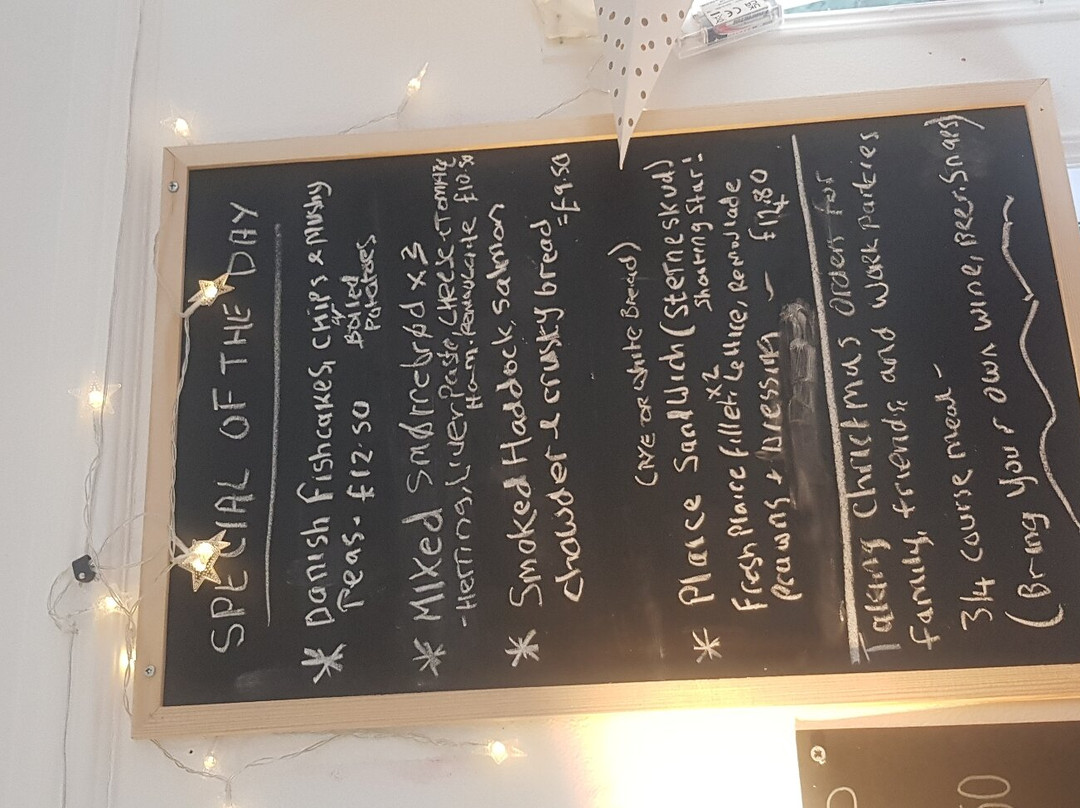 SPECIAL OF THE DAY
* Danish Fishcakes, chips & Mushy
Peas - £12.50 or Boiled Potatoes
* Mixed Smørrebrød x 3
- Herring, Liver Paste, Cheek + Tomato
Ham. Remoulade £10.50
* Smoked Haddock, salmon
chowder & crusty bread
= £9.50
(Rye or white Bread)
* Plaice Sandwich (Sterneskud)
Shooting Star!
Fresh Plaice fillet x2, Lettuce, Remoulade
prawns + Dressing -
Taking Christmas orders for
family, friends and work parties
3/4 course meal -
(Bring your own wine, beer, Snaps)